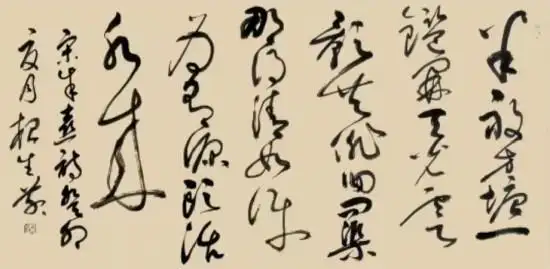 半畝方塘一
鑑開天光雲
影共徘徊問渠
那得清如許
為有源頭活
水來
宋朱熹詩癸卯
夏月